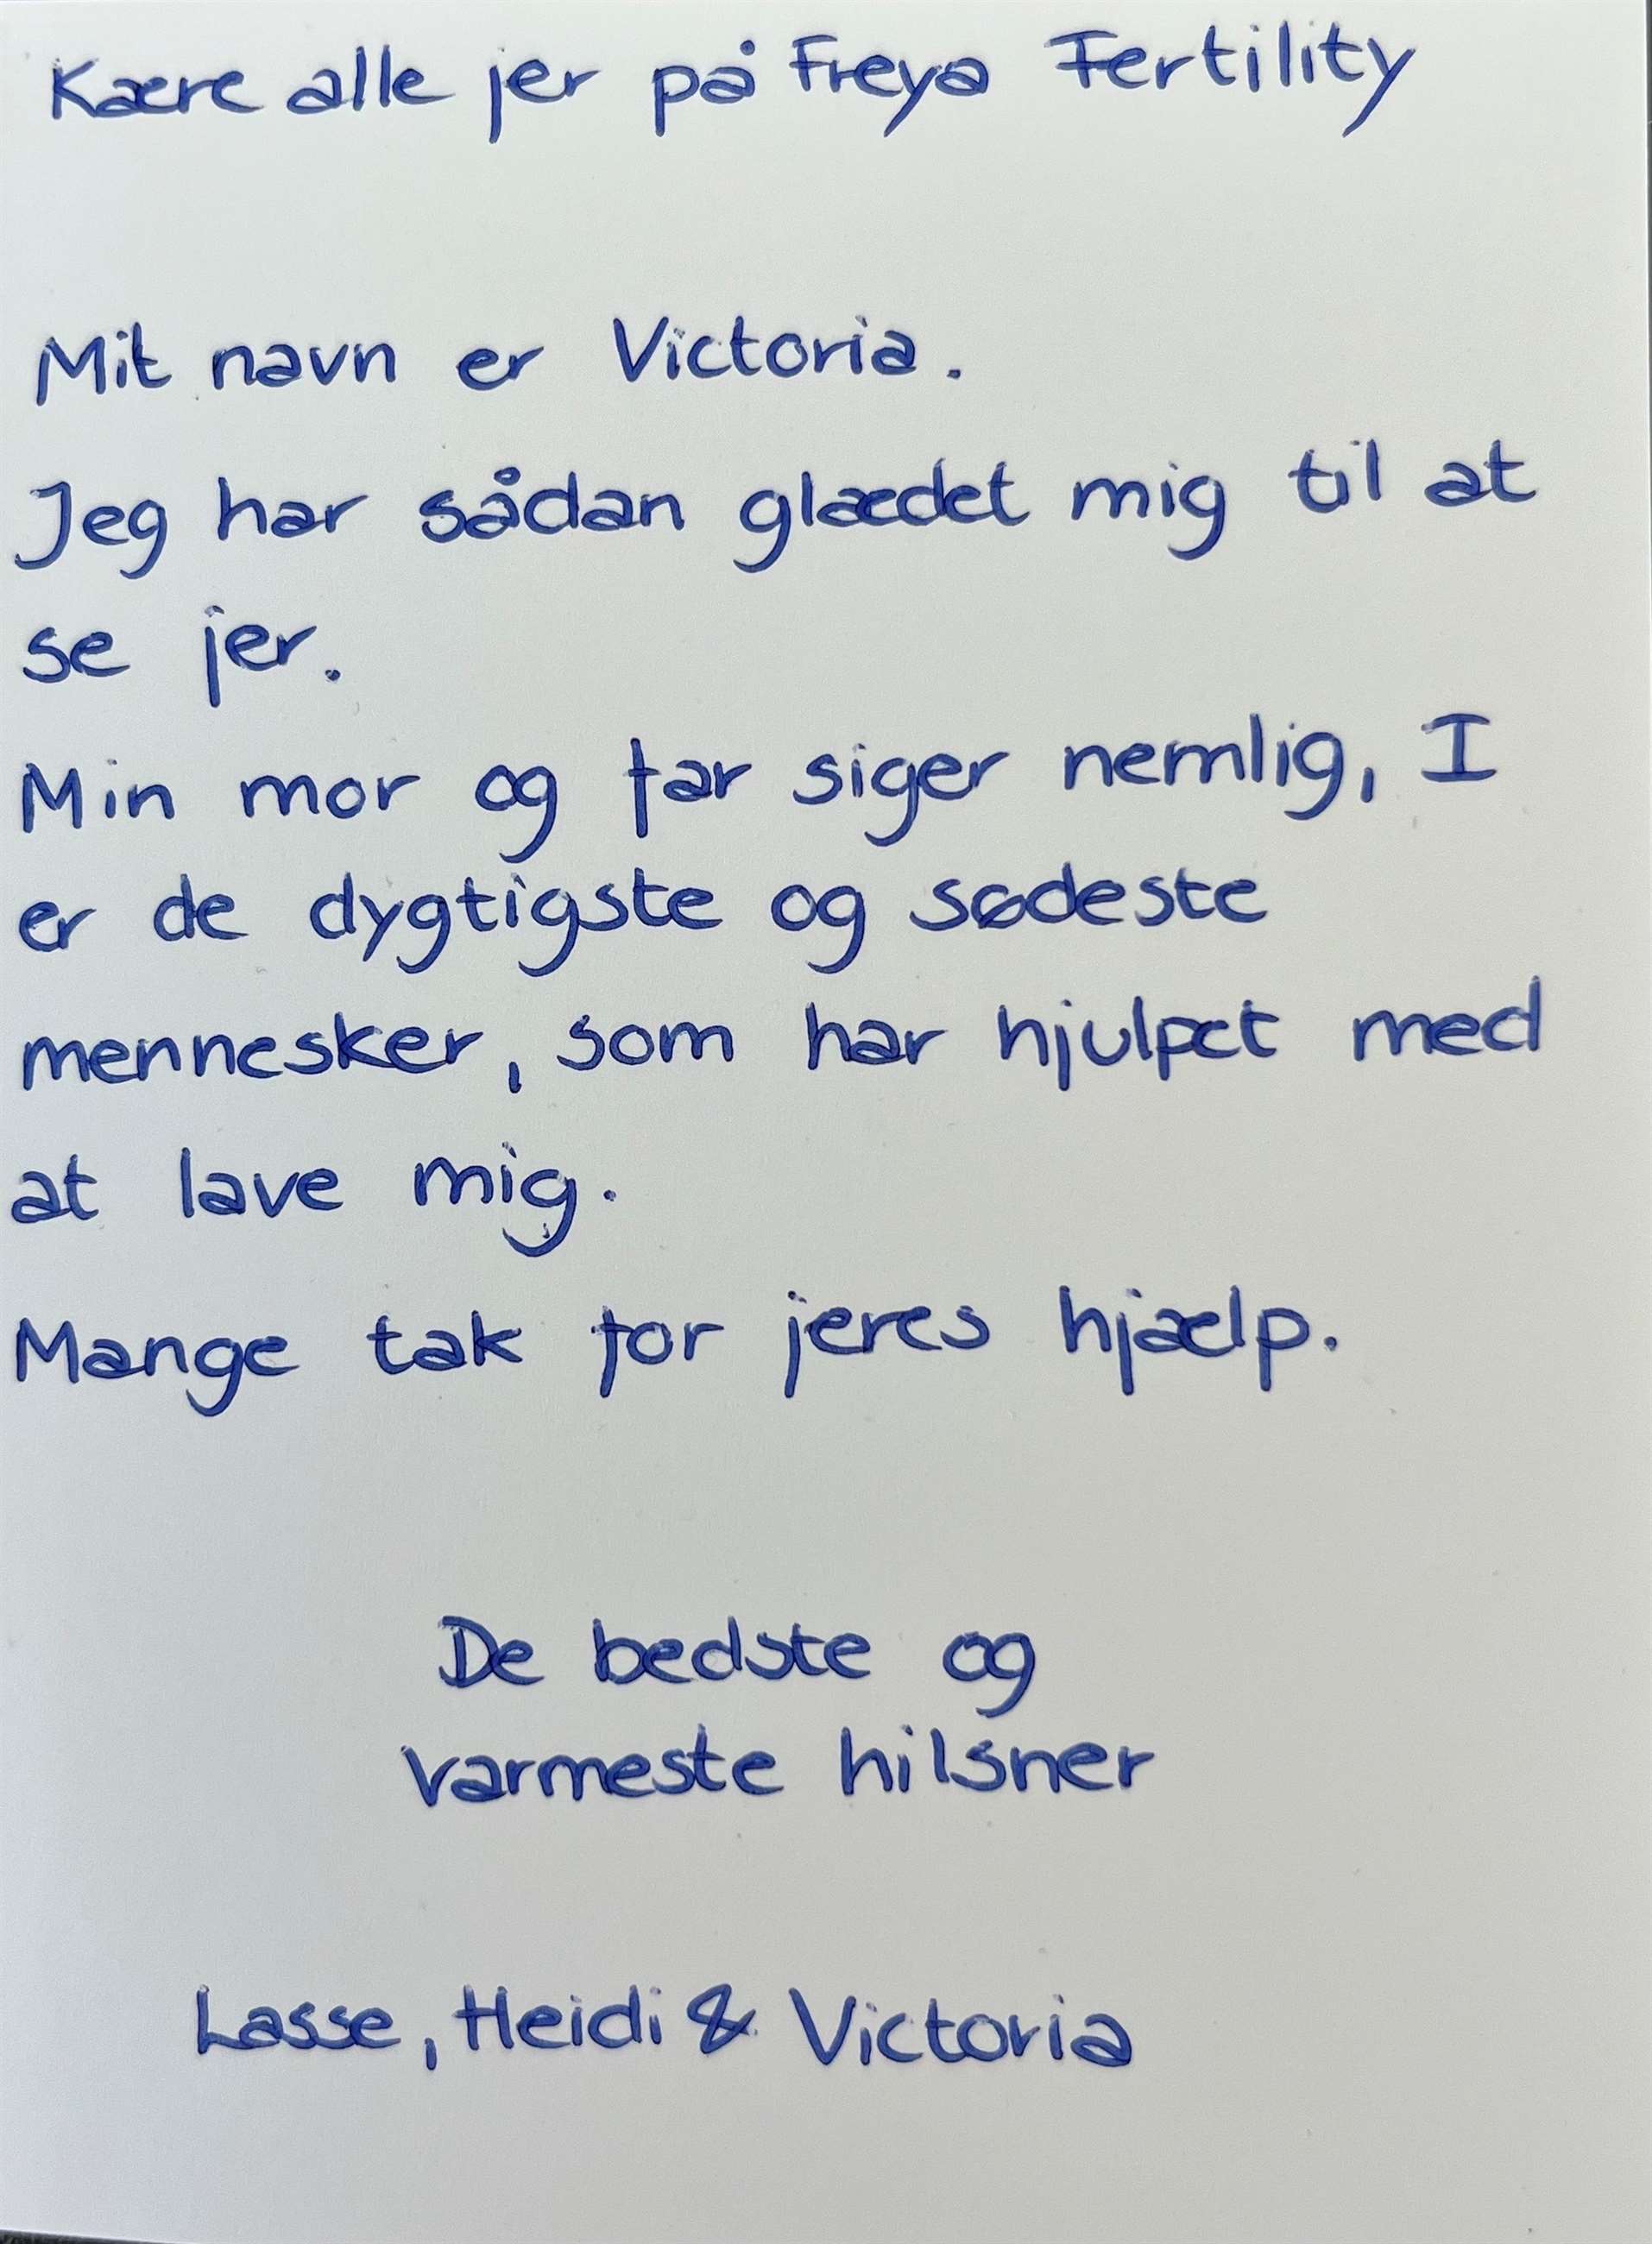 Kære alle jer på Freya Fertility
Mit navn er Victoria.
Jeg har sådan glædet mig til at
se jer.
Min mor og far siger nemlig, I
er de dygtigste og sødeste
mennesker, som har hjulpet med
at lave mig.
Mange tak for jeres hjælp.
De bedste og
varmeste hilsner
Lasse, Heidi & Victoria